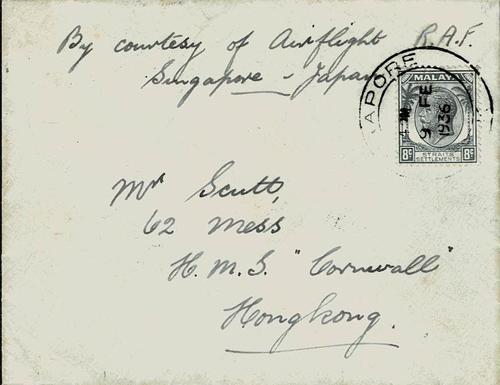 By courtesy of Airflight R.A.F.
Singapore - Japan
APORE
9 FE
1936
MALAYA
8c 8c
STRAITS
SETTLEMENTS
Mr Scutt,
62 Mess
H.M.S. "Cornwall"
Hongkong.